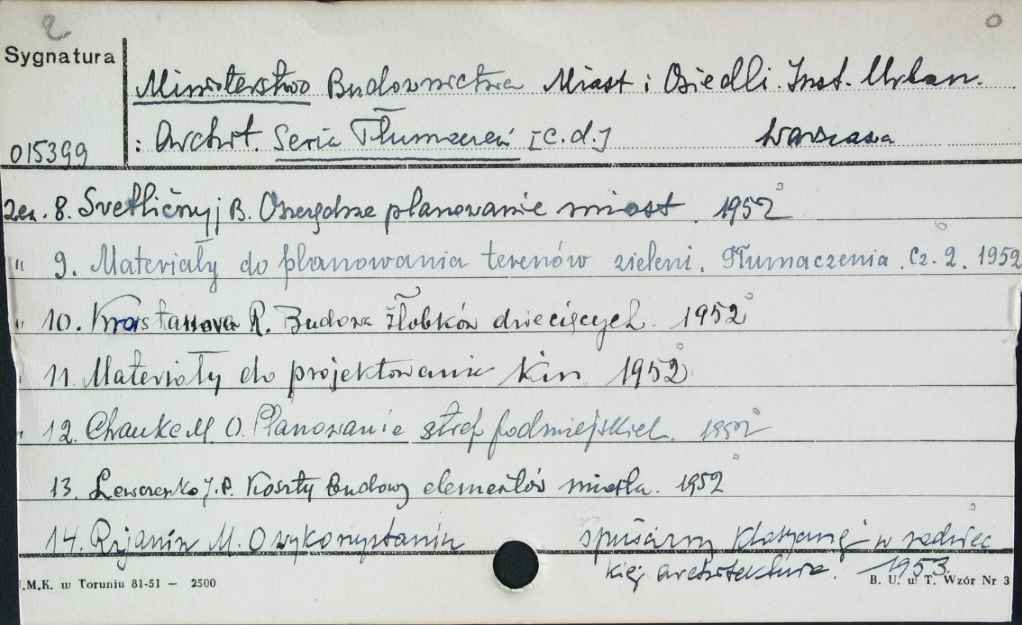 2
Sygnatura
Ministerstwo Budownictwa Miast i Osiedli. Inst. Urban.
015399 : Archit. Seria Tłumaczeń [c.d.] Warszawa
Zesz. 8. Svetličnyj B. Oszczędne planowanie miast. 1952
" 9. Materiały do planowania terenów zieleni. Tłumaczenia. Cz. 2. 1952
" 10. R. Budowa żłobków dziecięcych. 1952
" 11. Materiały do projektowania kin 1952
" 12. Chauke M. O. Planowanie stref podmiejskich. 1952
13. Lewczenko J. P. Koszty budowy elementów miasta. 1952
14. M. O wykorzystaniu spuścizny klasycznej w radziec
kiej architekturze. 1953.
U.M.K. w Toruniu 81-51 — 2500
B. U. w T. Wzór Nr 3